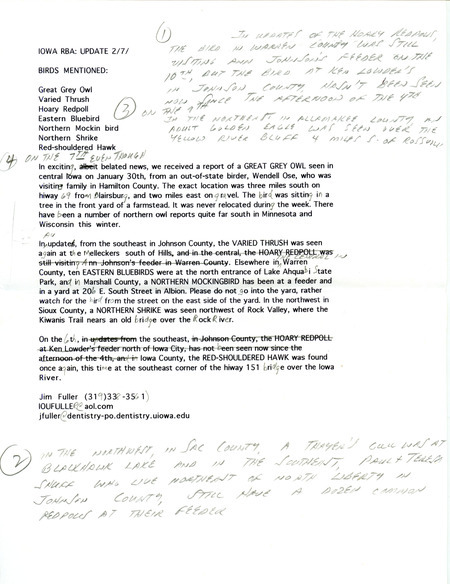 ① IN UPDATES OF THE HOARY REDPOLLS,
THE BIRD IN WARREN COUNTY WAS STILL
VISITING ANN JOHNSON'S FEEDER ON THE
10TH, BUT THE BIRD AT KEN LOWDER'S
IN JOHNSON COUNTY, HASN'T BEEN SEEN
NOW SINCE THE AFTERNOON OF THE 4TH
IOWA RBA: UPDATE 2/7/
BIRDS MENTIONED:
Great Grey Owl
Varied Thrush
Hoary Redpoll
Eastern Bluebird
Northern Mockin bird
Northern Shrike
Red-shouldered Hawk
③ ON THE 9TH
IN THE NORTHEAST IN ALLAMAKEE COUNTY, AN
ADULT GOLDEN EAGLE WAS SEEN OVER THE
YELLOW RIVER BLUFF 4 MILES S. OF
4 ON THE 7TH EVEN THOUGH
In exciting, albeit belated news, we received a report of a GREAT GREY OWL seen in
central Iowa on January 30th, from an out-of-state birder, Wendell Ose, who was
visiting family in Hamilton County. The exact location was three miles south on
hiway 69 from Blairsburg, and two miles east on gravel. The bird was sitting in a
tree in the front yard of a farmstead. It was never relocated during the week. There
have been a number of northern owl reports quite far south in Minnesota and
Wisconsin this winter.
In updated, from the southeast in Johnson County, the VARIED THRUSH was seen
again at the Melleckers south of Hills, and in the central, the HOARY REDPOLL was
still visiting Ann Johnson's feeder in Warren County. Elsewhere in Warren
County, ten EASTERN BLUEBIRDS were at the north entrance of Lake Ahquabi State
Park, and in Marshall County, a NORTHERN MOCKINGBIRD has been at a feeder and
in a yard at 206 E. South Street in Albion. Please do not go into the yard, rather
watch for the bird from the street on the east side of the yard. In the northwest in
Sioux County, a NORTHERN SHRIKE was seen northwest of Rock Valley, where the
Kiwanis Trail nears an old bridge over the Rock River.
On the 6th, in updates from the southeast, in Johnson County, the HOARY REDPOLL
at Ken Lowder's feeder north of Iowa City, has not been seen now since the
afternoon of the 4th, and in Iowa County, the RED-SHOULDERED HAWK was found
once again, this time at the southeast corner of the hiway 151 bridge over the Iowa
River.
Jim Fuller (319)338-3561)
IOUFULLE@aol.com
jfuller@dentistry-po.dentistry.uiowa.edu
② IN THE NORTHWEST, IN SAC COUNTY, A THAYER'S GULL WAS AT
BLACKHAWK LAKE AND IN THE SOUTHEAST, PAUL & TERESA
WHO LIVE NORTHEAST OF NORTH LIBERTY IN
JOHNSON COUNTY, STILL HAVE A DOZEN COMMON
REDPOLLS AT THEIR FEEDER